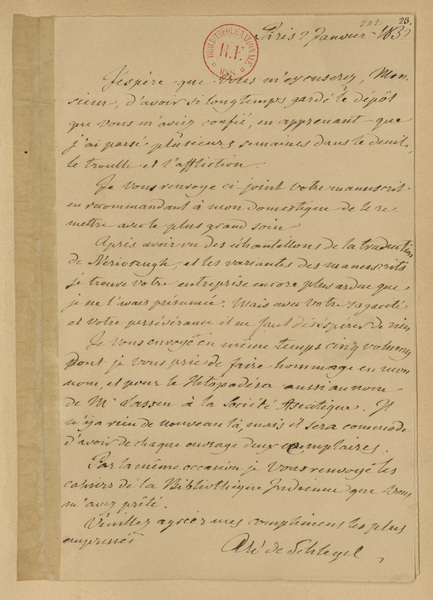 23.
Paris 7 Janvier 183
BIBLIOTHÈQUE NATIONALE
R.F.
MSS
J'espère que Vous m'excuserez, Mon-
sieur, d'avoir si longtemps gardé le dépôt
que vous m'aviez confié, en apprenant que
j'ai passé plusieurs semaines dans le deuil,
le trouble et l'affliction.
Je vous renvoye ci joint votre manuscrit
en recommandant à mon domestique de le re-
mettre avec le plus grand soin.
Après avoir vu des échantillons de la traduction
de Neriosengh, et les variantes des manuscrits
je trouve votre entreprise encore plus ardue que
je ne l'avais présumé. Mais avec votre sagacité
et votre persévérance il ne faut désespérer de rien
Je vous envoye en même temps cinq volumes
dont je vous prie de faire hommage en mon
nom, et pour le Hitopadésa aussi au nom
de Mr Lassen à la Société Asiatique. Il
n'y a rien de nouveau là, mais il sera commode
d'avoir de chaque ouvrage deux exemplaires.
Par la même occasion je Vous renvoye les
cahiers de la Bibliothèque Indienne que Vous
m'avez prêté.
Veuillez agréer mes complimens les plus
empressés
de Schlegel